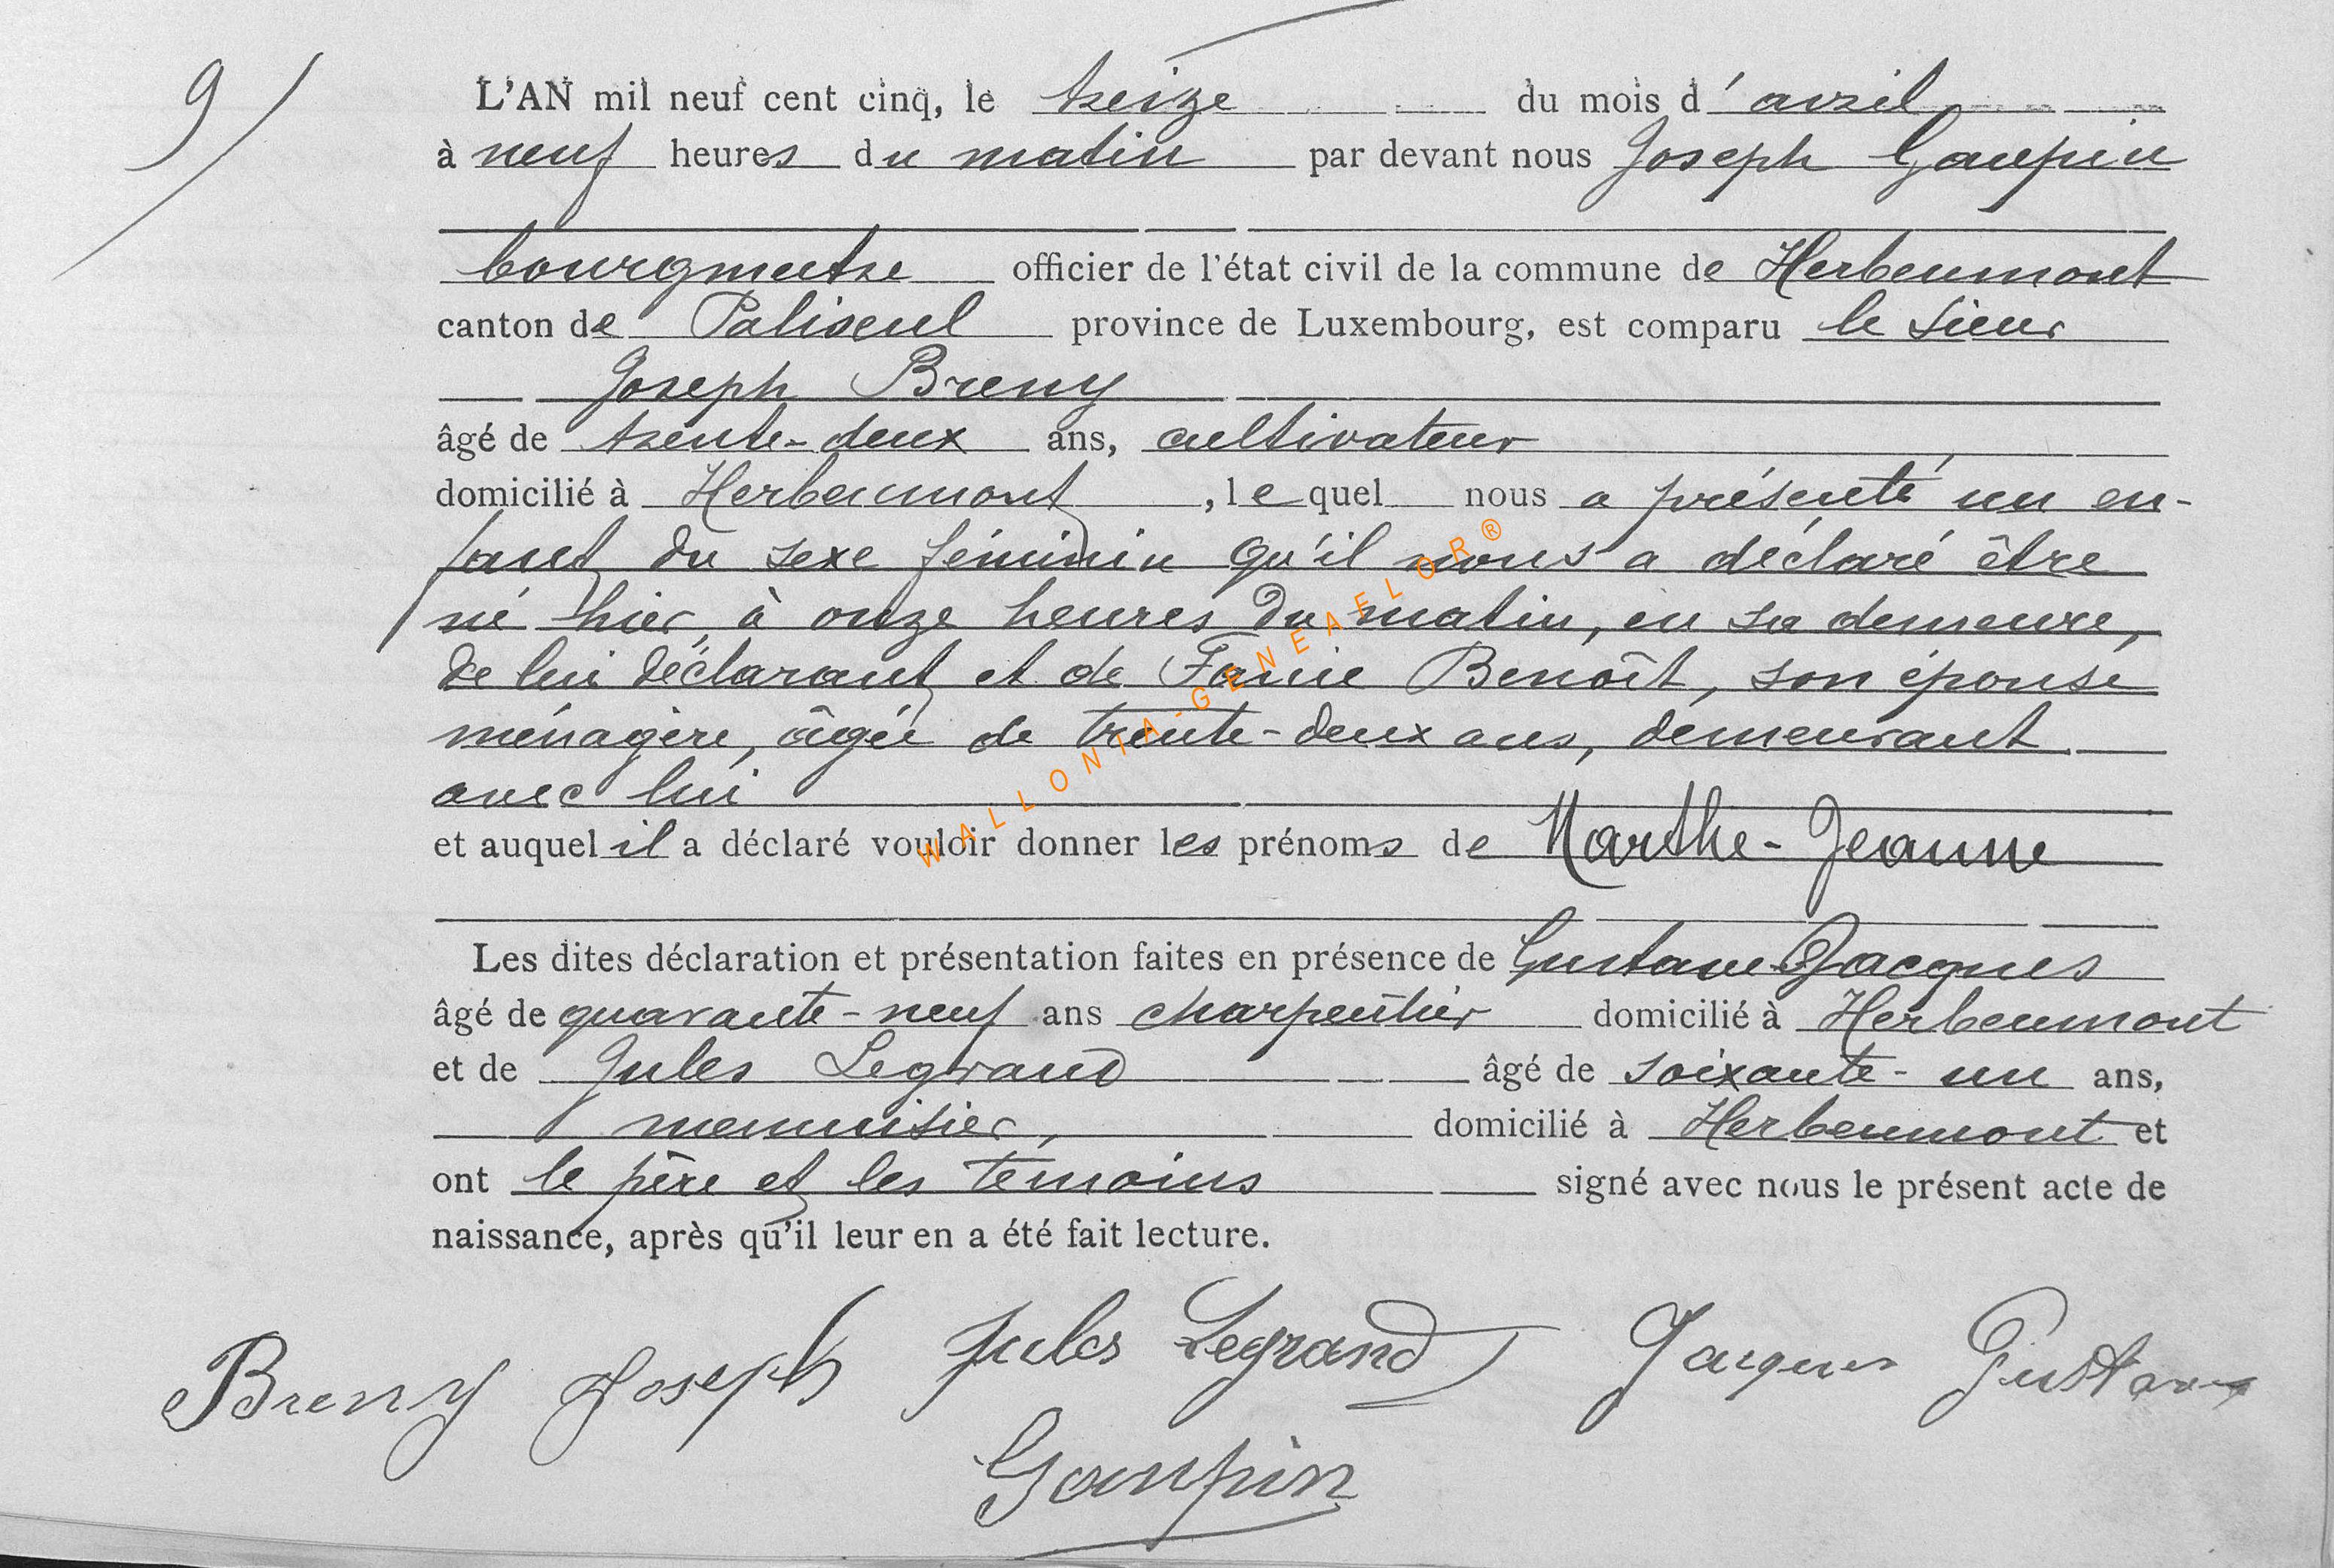 9/
L'AN mil neuf cent cinq, le treize du mois d'avril
à neuf heures du matin par devant nous Joseph Goupin
bourgmetre officier de l'état civil de la commune de Herbeumont
canton de Paliseul province de Luxembourg, est comparu le sieur
Joseph Breny
âgé de trente-deux ans, cultivateur
domicilié à Herbeumont, lequel nous a présenté un en-
fant du sexe féminin qu'il nous a déclaré être
né hier, à onze heures du matin, en sa demeure,
de lui déclarant et de Fanie Benoît, son épouse
ménagère, âgée de trente-deux ans, demeurant
avec lui
et auquel il a déclaré vouloir donner les prénoms de Marthe-Jeanne
Les dites déclaration et présentation faites en présence de Gustave Jacques
âgé de quarante-neuf ans charpentier domicilié à Herbeumont
et de Jules Legrand âgé de soixante-un ans,
menuisier, domicilié à Herbeumont et
ont le père et les témoins signé avec nous le présent acte de
naissance, après qu'il leur en a été fait lecture.
Breny Joseph Jules Legrand Jacques Gustave
Goupin
WALLONIA-GENEAELOR®